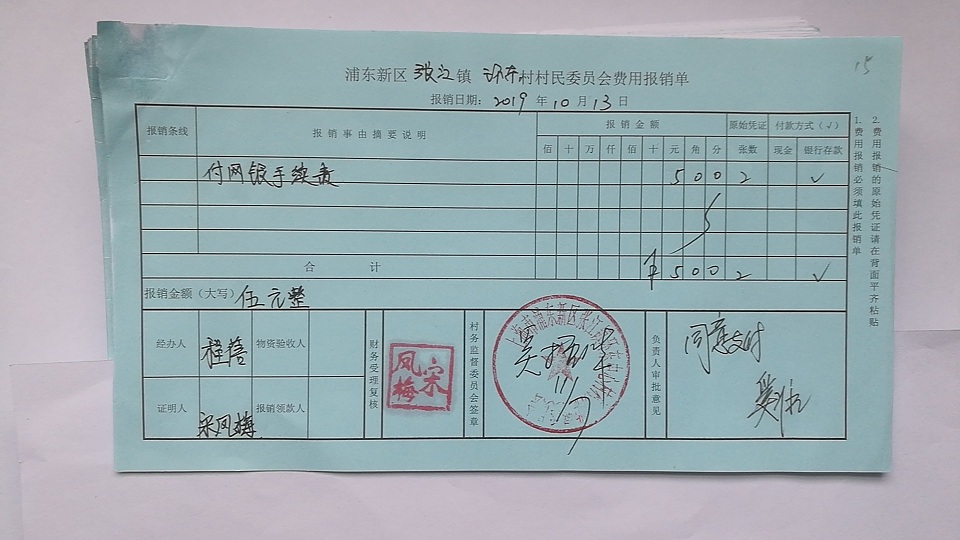 15
浦东新区张江镇环东村村民委员会费用报销单
报销日期：2019年10月13日
报销条线 报销事由摘要说明 报销金额 原始凭证 付款方式（√）
佰 十 万 仟 佰 十 元 角 分 张数 现金 银行存款
付网银手续费 5 0 0 2 √
合计 ¥ 5 0 0 2 √
报销金额（大写） 伍元整
经办人 物资验收人
证明人 宋凤梅 报销领款人
财务受理复核
宋凤梅
村务监督委员会签章
11/7
负责人审批意见
同意支付
1.费用报销必须填此报销单
2.费用报销的原始凭证请在背面平齐粘贴